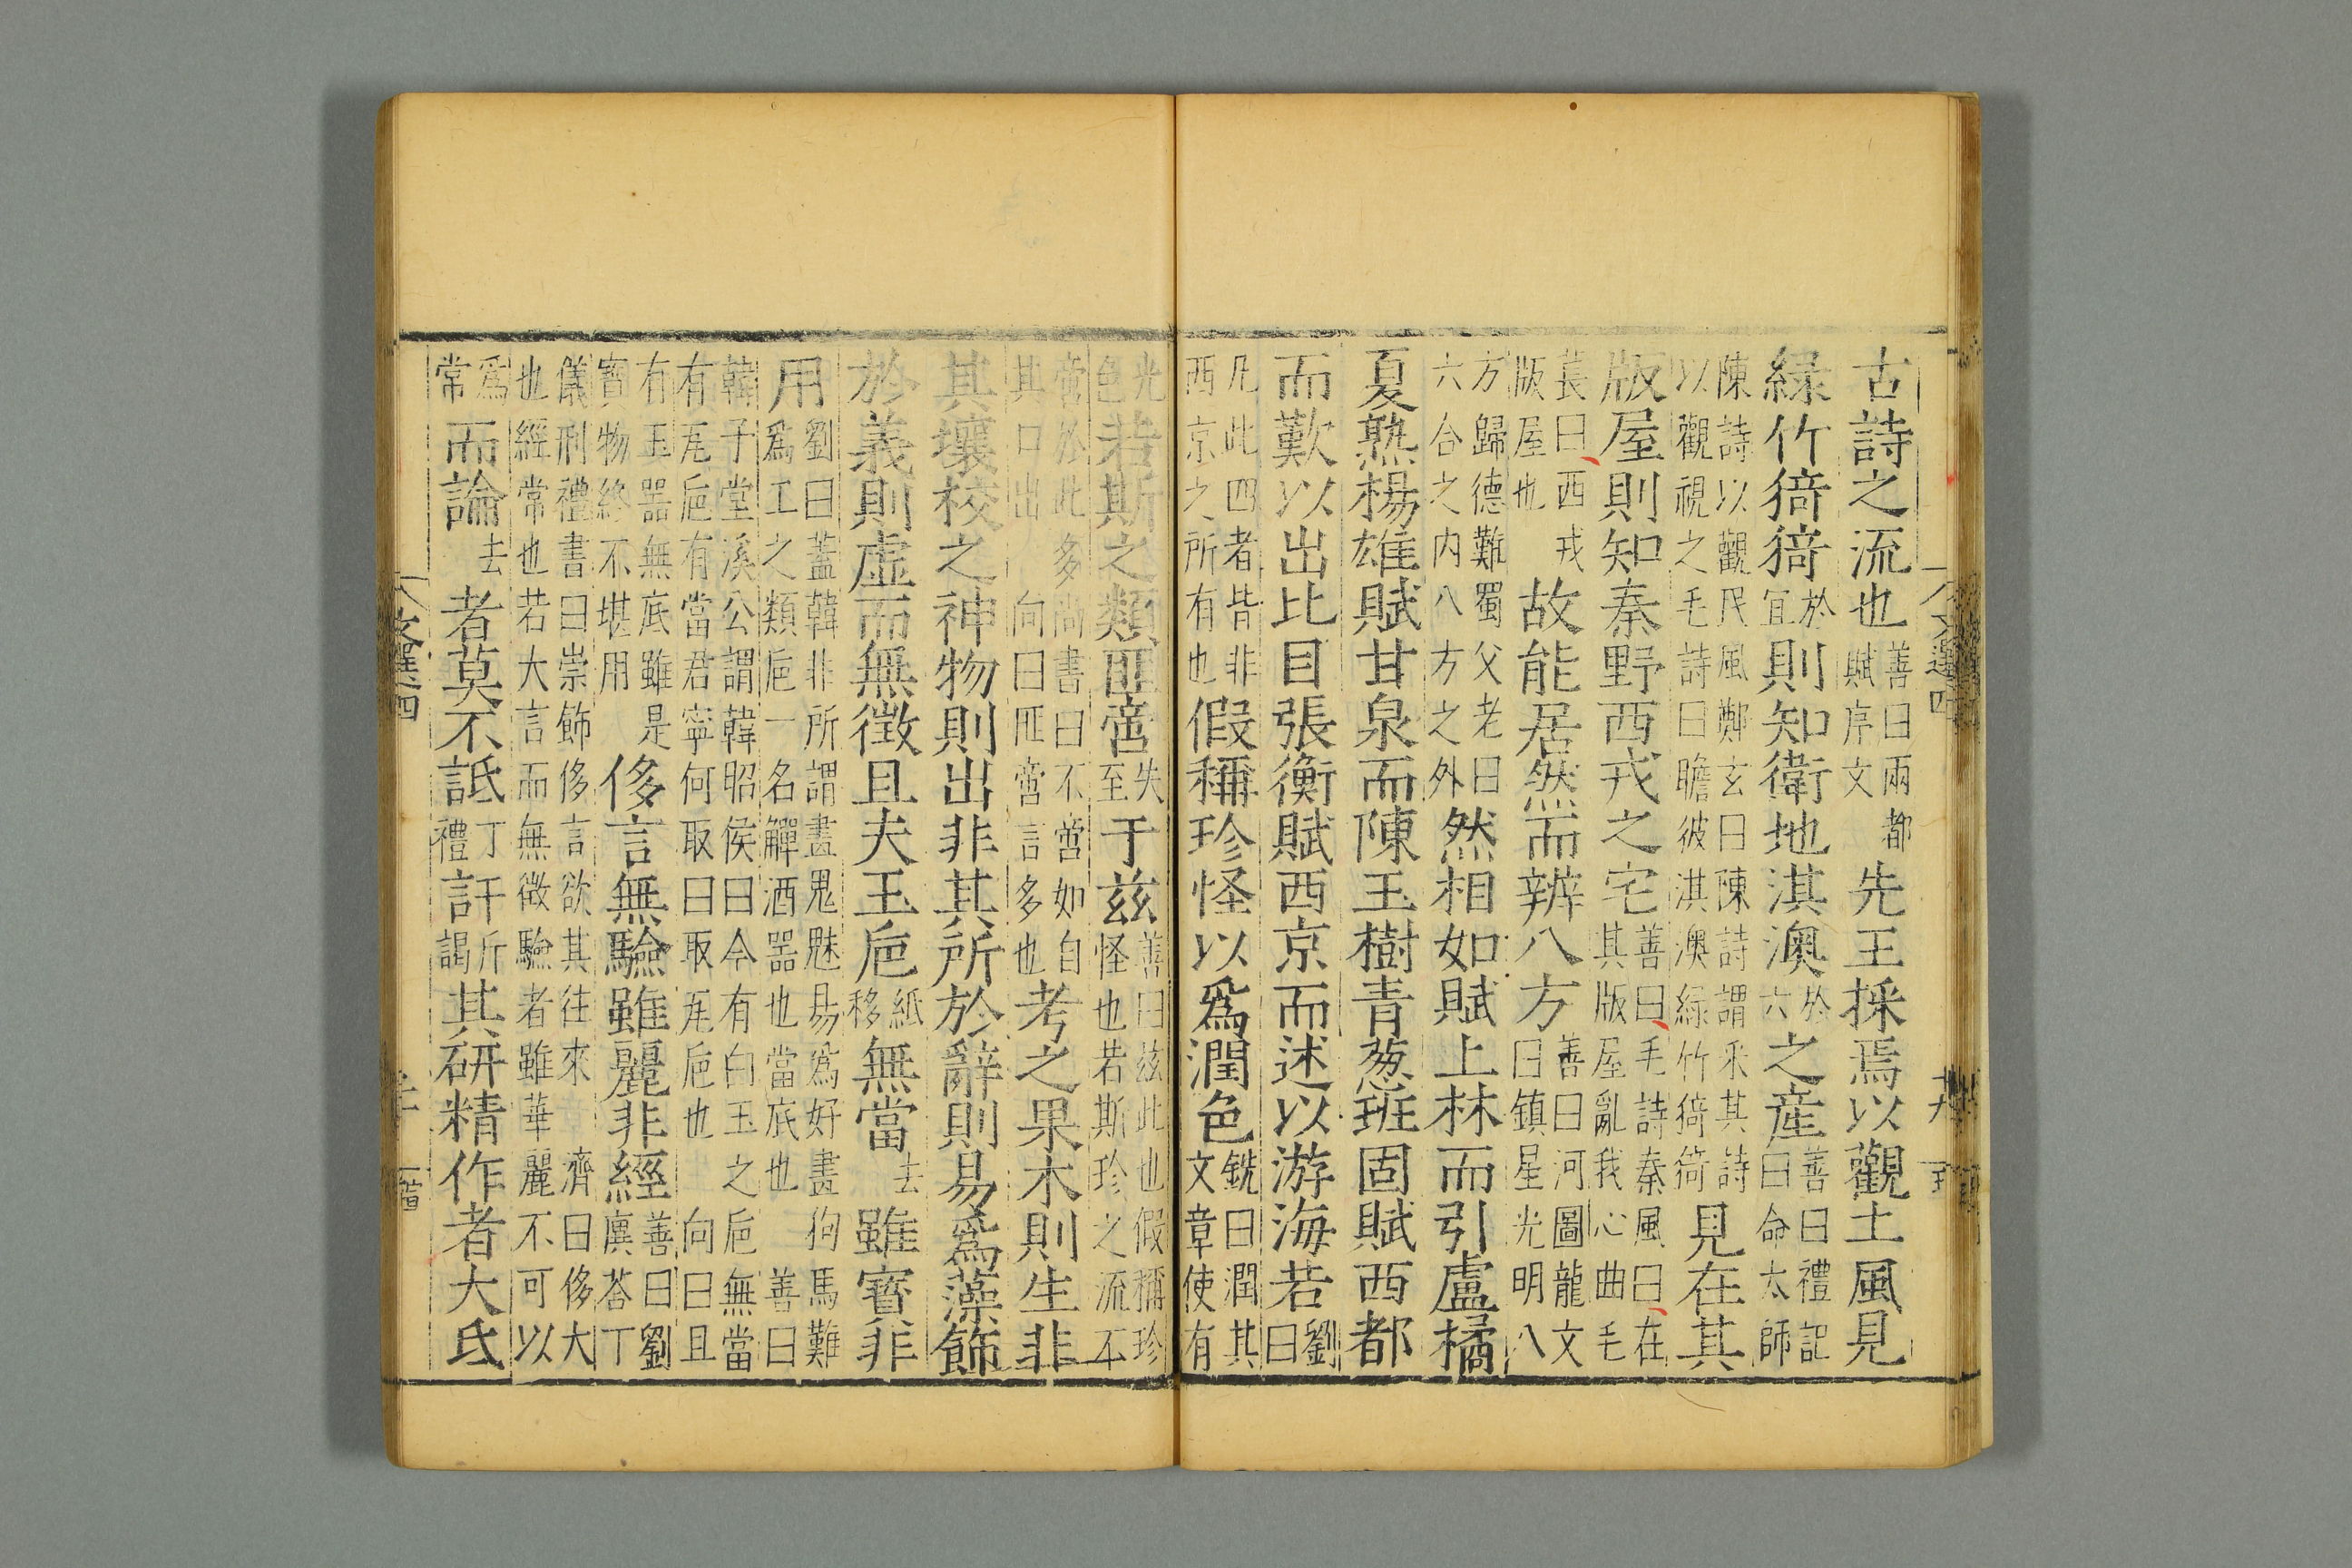 古詩之流也善曰兩都賦序文先王採焉以觀土風見
綠竹猗猗於宜則知衛地淇澳於六之産善曰禮記曰命太師
陳詩以觀民風鄭玄曰陳詩謂采其詩以觀視之毛詩曰瞻彼淇澳綠竹猗猗見在其
版屋則知秦野西戎之宅善曰毛詩秦風曰在其版屋亂我心曲毛
萇曰西戎版屋也故能居然而辨八方善曰河圖龍文曰鎮星光明八
方歸德難蜀父老曰六合之內八方之外然相如賦上林而引盧橘
夏熟楊雄賦甘泉而陳玉樹青葱班固賦西都
而歎以出比目張衡賦西京而述以游海若劉曰
凡此四者皆非西京之所有也假稱珍怪以爲潤色銑曰潤其文章使有
光色若斯之類匪啻失至于兹善曰兹此也假稱珍怪也若斯珍之流不
啻於此多尚書曰不啻如自其口出向曰匪啻言多也考之果木則生非
其壤校之神物則出非其所於辭則易爲藻飾
於義則虛而無徵且夫玉巵紙移無當去雖寶非
用劉曰蓋韓非所謂畫鬼魅易爲好畫狗馬難爲工之類巵一名觶酒器也當底也善曰
韓子堂溪公謂韓昭侯曰今有白玉之巵無當有瓦巵有當君寧何取曰取瓦巵也向曰且
有玉器無底雖是寶物終不堪用侈言無驗雖麗非經善曰劉廙荅丁
儀刑禮書曰崇飾侈言欲其往來濟曰侈大也經常也若大言而無徵驗者雖華麗不可以
爲常而論去者莫不詆丁禮訐斤謁其研精作者大氐
文選四
十九
文選四
二十